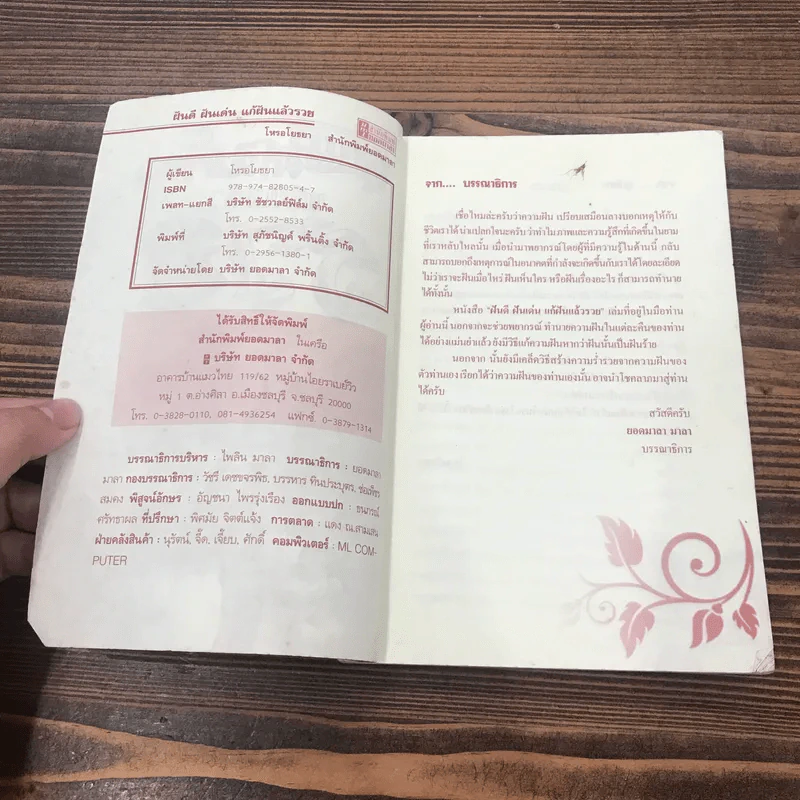 ฝันดี ฝันเด่น แก้ฝันแล้วรวย
โหรอโยธยา สำนักพิมพ์ยอดมาลา
ผู้เขียน โหรอโยธยา
ISBN 978-974-82805-4-7
เพลท-แยกสี บริษัท ชัชวาลย์ฟิล์ม จำกัด
โทร. 0-2552-8533
พิมพ์ที่ บริษัท สุภัชนิญค์ พริ้นติ้ง จำกัด
โทร. 0-2956-1380-1
จัดจำหน่ายโดย บริษัท ยอดมาลา จำกัด
ได้รับสิทธิ์ให้จัดพิมพ์
สำนักพิมพ์ยอดมาลา ในเครือ
บริษัท ยอดมาลา จำกัด
อาคารบ้านแมวไทย 119/62 หมู่บ้านไอยราเบย์วิว
หมู่ 1 ต.อ่างศิลา อ.เมืองชลบุรี จ.ชลบุรี 20000
โทร. 0-3828-0110, 081-4936254 แฟกซ์. 0-3879-1314
บรรณาธิการบริหาร : ไพลิน มาลา บรรณาธิการ : ยอดมาลา
มาลา กองบรรณาธิการ : วัชรี เดชขจรพิธ, บรรหาร ทีนประบุตร, ช่อเพ็ชร
สมคง พิสูจน์อักษร : อัญชนา ไพรรุ่งเรือง ออกแบบปก : ธนภรณ์
ศรัทธาผล ที่ปรึกษา : พิศมัย จิตต์แจ้ง การตลาด : แดง ณ.สามแสน
ฝ่ายคลังสินค้า : นุรัตน์, จี๊ด, เจี๊ยบ, ศักดิ์ คอมพิวเตอร์ : ML COM-
PUTER
จาก.... บรรณาธิการ
เชื่อไหมละครับว่าความฝัน เปรียบเสมือนลางบอกเหตุให้กับ
ชีวิตเราได้ น่าแปลกใจนะครับว่าทำไมภาพและความรู้สึกที่เกิดขึ้นในยาม
ที่เราหลับใหลนั้น เมื่อนำมาพยากรณ์โดยผู้ที่มีความรู้ในด้านนี้ กลับ
สามารถบอกถึงเหตุการณ์ในอนาคตที่กำลังจะเกิดขึ้นกับเราได้โดยละเอียด
ไม่ว่าเราจะฝันเมื่อไหร่ ฝันเห็นใคร หรือฝันเรื่องอะไร ก็สามารถทำนาย
ได้ทั้งนั้น
หนังสือ "ฝันดี ฝันเด่น แก้ฝันแล้วรวย" เล่มที่อยู่ในมือท่าน
ผู้อ่านนี้ นอกจากจะช่วยพยากรณ์ ทำนายความฝันในแต่ละคืนของท่าน
ได้อย่างแม่นยำแล้ว ยังมีวิธีแก้ความฝันหากว่าฝันนั้นเป็นฝันร้าย
นอกจาก นั้นยังมีเคล็ดวิธีสร้างความร่ำรวยจากความฝันของ
ตัวท่านเอง เรียกได้ว่าความฝันของท่านเองนั้น อาจนำโชคลาภมาสู่ท่าน
ได้ครับ
สวัสดีครับ
ยอดมาลา มาลา
บรรณาธิการ